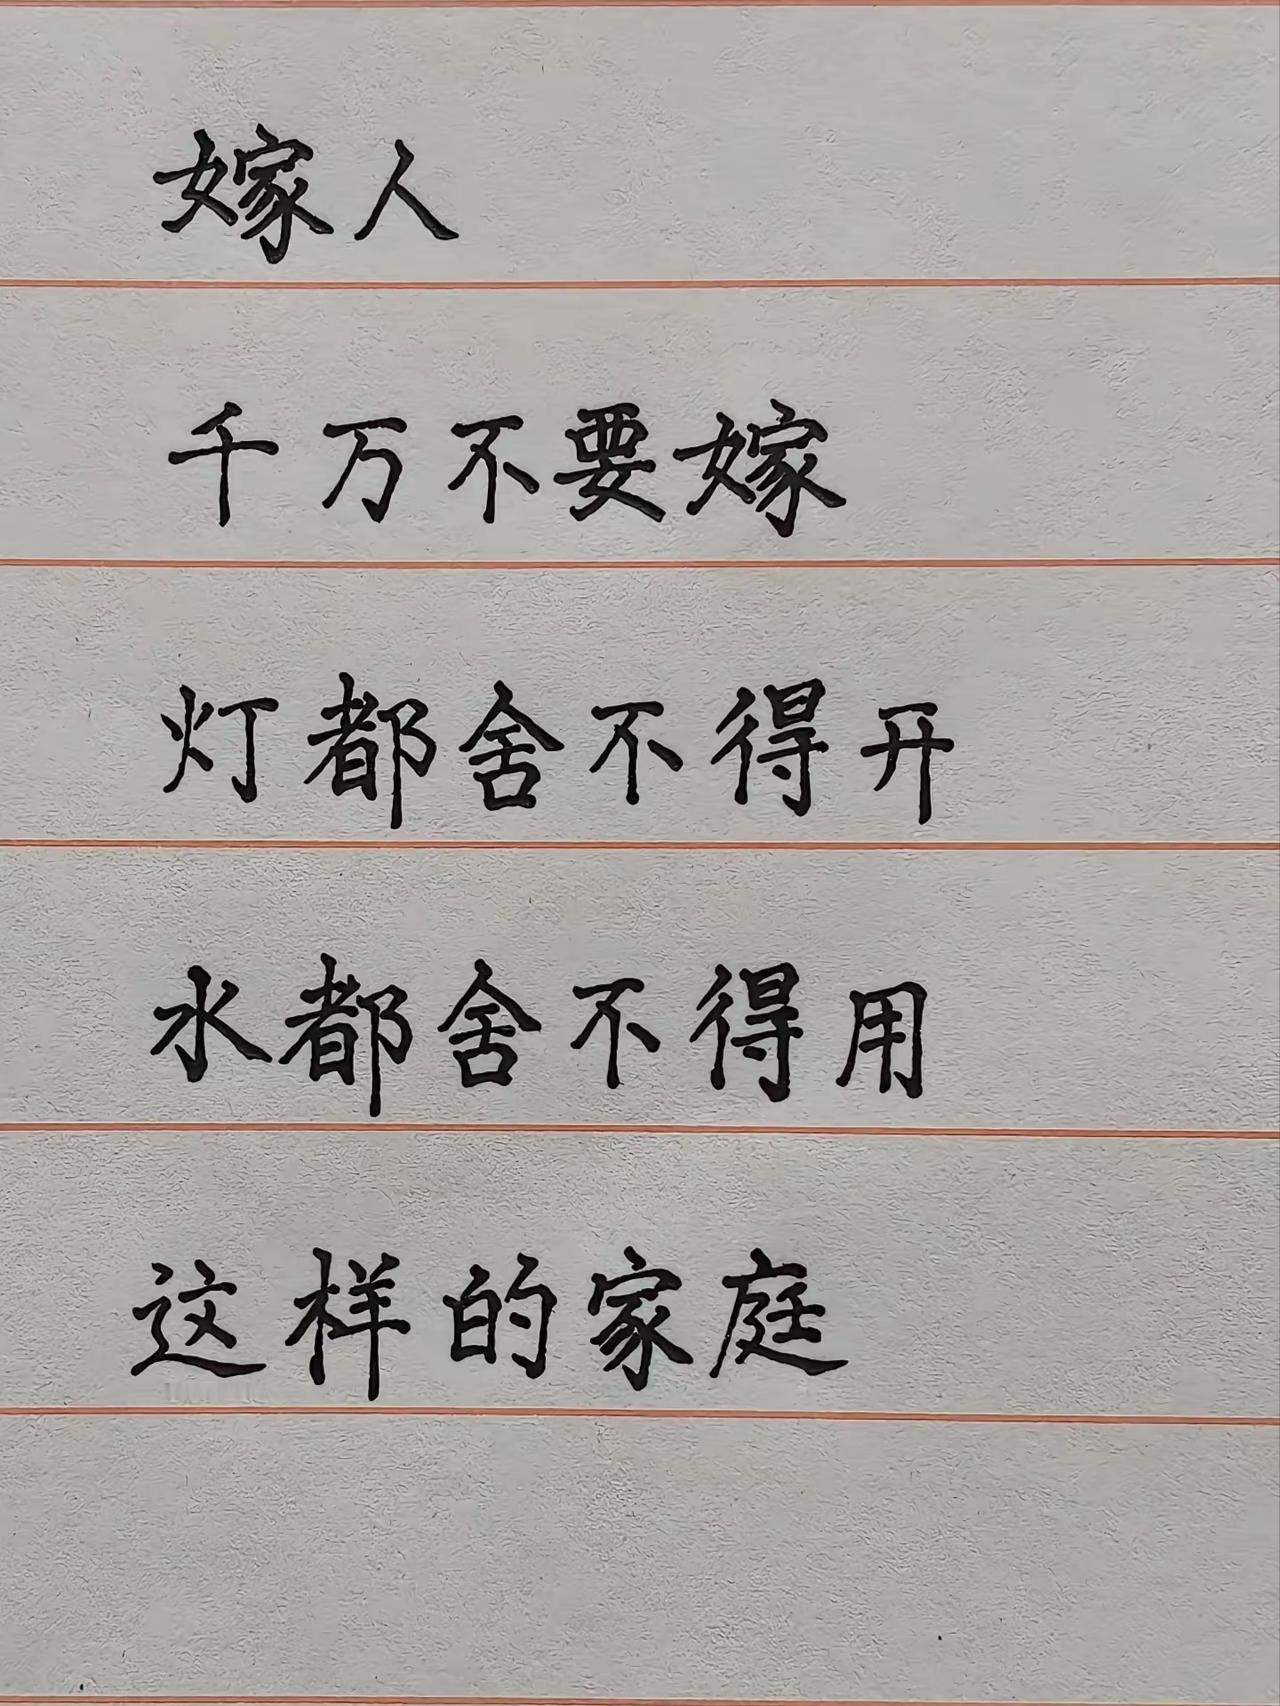 嫁人
千万不要嫁
灯都舍不得开
水都舍不得用
这样的家庭